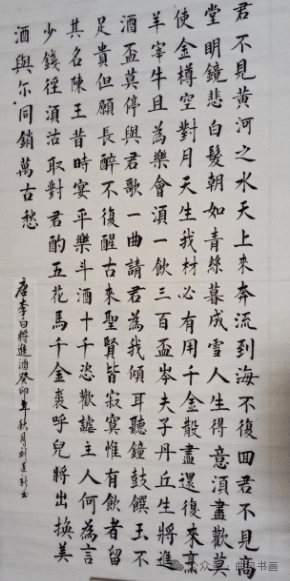 君不見黃河之水天上來奔流到海不復回君不見高
堂明鏡悲白髮朝如青絲暮成雪人生得意須盡歡莫
使金樽空對月天生我材必有用千金散盡還復來烹
羊宰牛且為樂會須一飲三百盃岑夫子丹丘生將進
酒盃莫停與君歌一曲請君為我傾耳聽鐘鼓饌玉不
足貴但願長醉不復醒古來聖賢皆寂寞惟有飲者留
其名陳王昔時宴平樂斗酒十千恣歡謔主人何為言
少錢徑須沽取對君酌五花馬千金裘呼兒將出換美
酒與尔同銷萬古愁
唐李白將進酒癸卯年秋月
公众号
书画